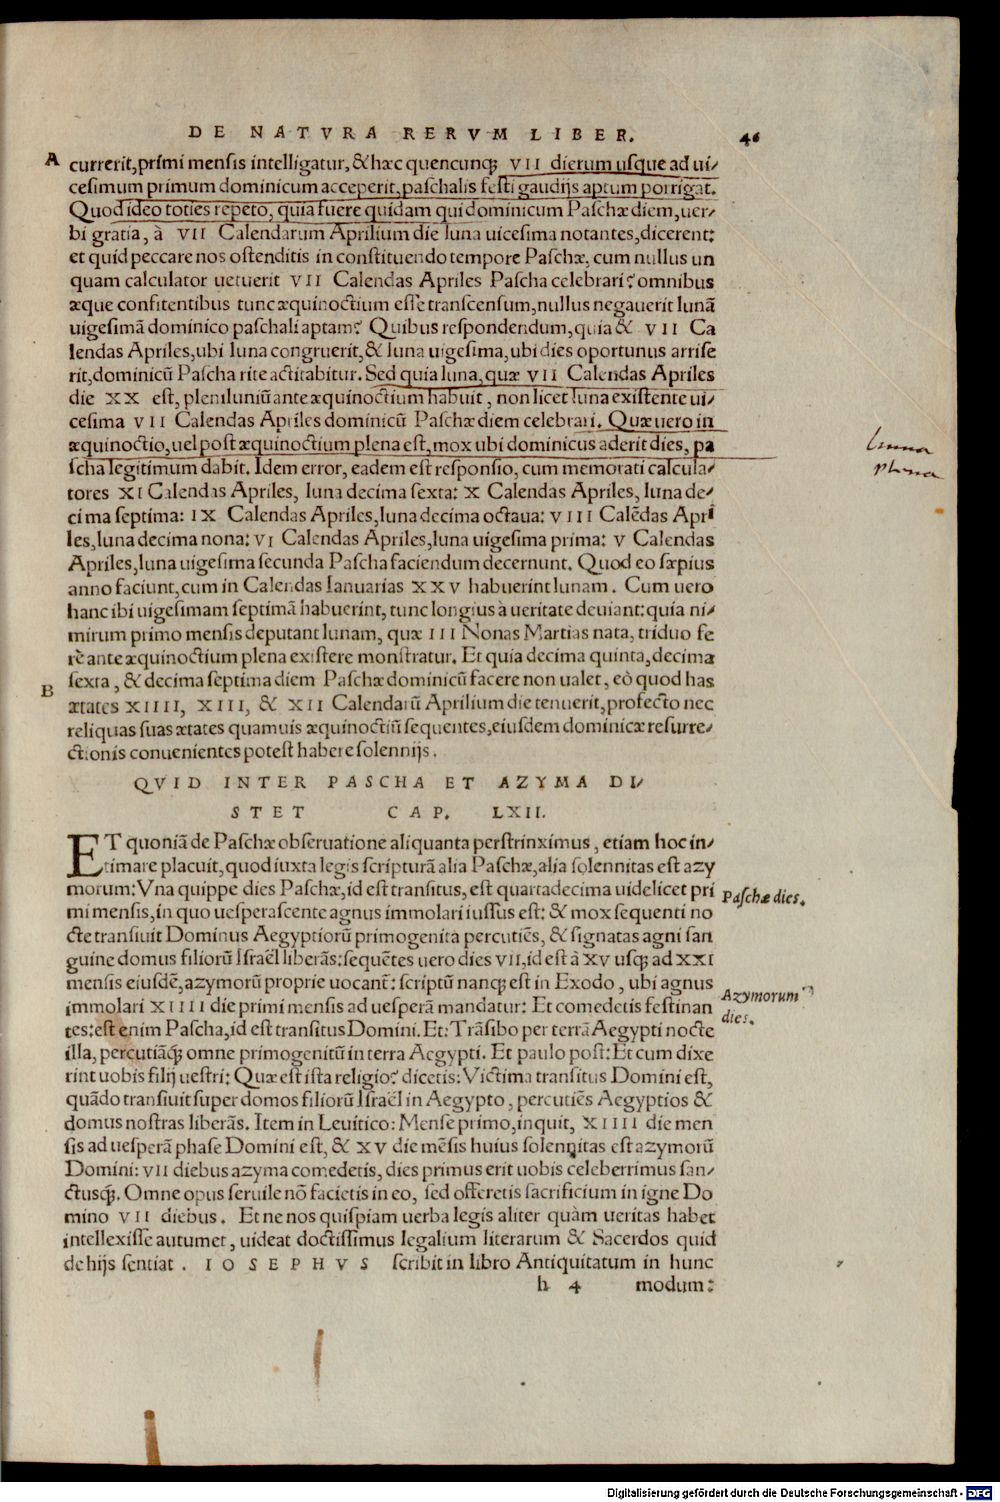 DE NATVRA RERVM LIBER. 46
A currerit,primi mensis intelligatur,&hæc quencunq; VII dierum usque ad ui/
cesimum primum dominicum acceperit,paschalis festi gaudijs aptum porrigat.
Quod ideo toties repeto, quia fuere quidam qui dominicum Paschæ diem,uer/
bi gratia, à VII Calendarum Aprilium die luna uicesima notantes,dicerent:
et quid peccare nos ostenditis in constituendo tempore Paschæ, cum nullus un
quam calculator uetuerit VII Calendas Apriles Pascha celebrari? omnibus
æque confitentibus tunc æquinoctium esse transcensum,nullus negauerit lunã
uigesimã dominico paschali aptam? Quibus respondendum,quia & VII Ca
lendas Apriles,ubi luna congruerit,& luna uigesima,ubi dies oportunus arrise
rit,dominicũ Pascha rite actitabitur. Sed quia luna,quæ VII Calendas Apriles
die XX est, pleniluniũ ante æquinoctium habuit, non licet luna existente ui/
cesima VII Calendas Apriles dominicũ Paschæ diem celebrari. Quæ uero in
æquinoctio,uel post æquinoctium plena est,mox ubi dominicus aderit dies, pa
scha legitimum dabit. Idem error, eadem est responsio, cum memorati calcula/
tores XI Calendas Apriles, luna decima sexta: X Calendas Apriles, luna de/
cima septima: IX Calendas Apriles,luna decima octaua: VIII Calẽdas Apri
les,luna decima nona: VI Calendas Apriles,luna uigesima prima: V Calendas
Apriles,luna uigesima secunda Pascha faciendum decernunt. Quod eo sæpius
anno faciunt,cum in Calendas Ianuarias XXV habuerint lunam. Cum uero
hanc ibi uigesimam septimã habuerint, tunc longius à ueritate deuiant: quia ni/
mirum primo mensis deputant lunam, quæ III Nonas Martias nata, triduo fe
rè ante æquinoctium plena existere monstratur. Et quia decima quinta,decima
B sexta, & decima septima diem Paschæ dominicũ facere non ualet, eò quod has
ætates XIIII, XIII, & XII Calendarũ Aprilium die tenuerit, profecto nec
reliquas suas ætates quamuis æquinoctiũ sequentes,eiusdem dominicæ resurre/
ctionis conuenientes potest habere solennijs.
luna
plena
QVID INTER PASCHA ET AZYMA DI/
STET CAP. LXII.
ET quoniã de Paschæ obseruatione aliquanta perstrinximus, etiam hoc in/
timare placuit,quod iuxta legis scripturã alia Paschæ,alia solennitas est azy
morum: Vna quippe dies Paschæ,id est transitus, est quartadecima uidelicet pri
mi mensis,in quo uesperascente agnus immolari iussus est: & mox sequenti no
cte transiuit Dominus Aegyptiorũ primogenita percutiẽs, & signatas agni san
guine domus filiorũ Israël liberãs: sequẽtes uero dies VII,id est à XV usq; ad XXI
mensis eiusdẽ,azymorũ proprie uocant: scriptũ nanq; est in Exodo, ubi agnus
immolari XIIII die primi mensis ad uesperã mandatur: Et comedetis festinan
tes: est enim Pascha,id est transitus Domini. Et: Trãsibo per terrã Aegypti nocte
illa, percutiãq; omne primogenitũ in terra Aegypti. Et paulo post: Et cum dixe
rint uobis filij uestri: Quæ est ista religio? dicetis: Victima transitus Domini est,
quãdo transiuit super domos filiorũ Israël in Aegypto, percutiẽs Aegyptios &
domus nostras liberãs. Item in Leuitico: Mense primo,inquit, XIIII die men
sis ad uesperã phase Domini est, & XV die mẽsis huius solennitas est azymorũ
Domini: VII diebus azyma comedetis, dies primus erit uobis celeberrimus san/
ctusq;. Omne opus seruile nõ facietis in eo, sed offeretis sacrificium in igne Do
mino VII diebus. Et ne nos quispiam uerba legis aliter quàm ueritas habet
intellexisse autumet, uideat doctissimus legalium literarum & Sacerdos quid
de hijs sentiat. IOSEPHVS scribit in libro Antiquitatum in hunc
h 4 modum:
Paschæ dies.
Azymorum
dies.
Digitalisierung gefördert durch die Deutsche Forschungsgemeinschaft - DFG